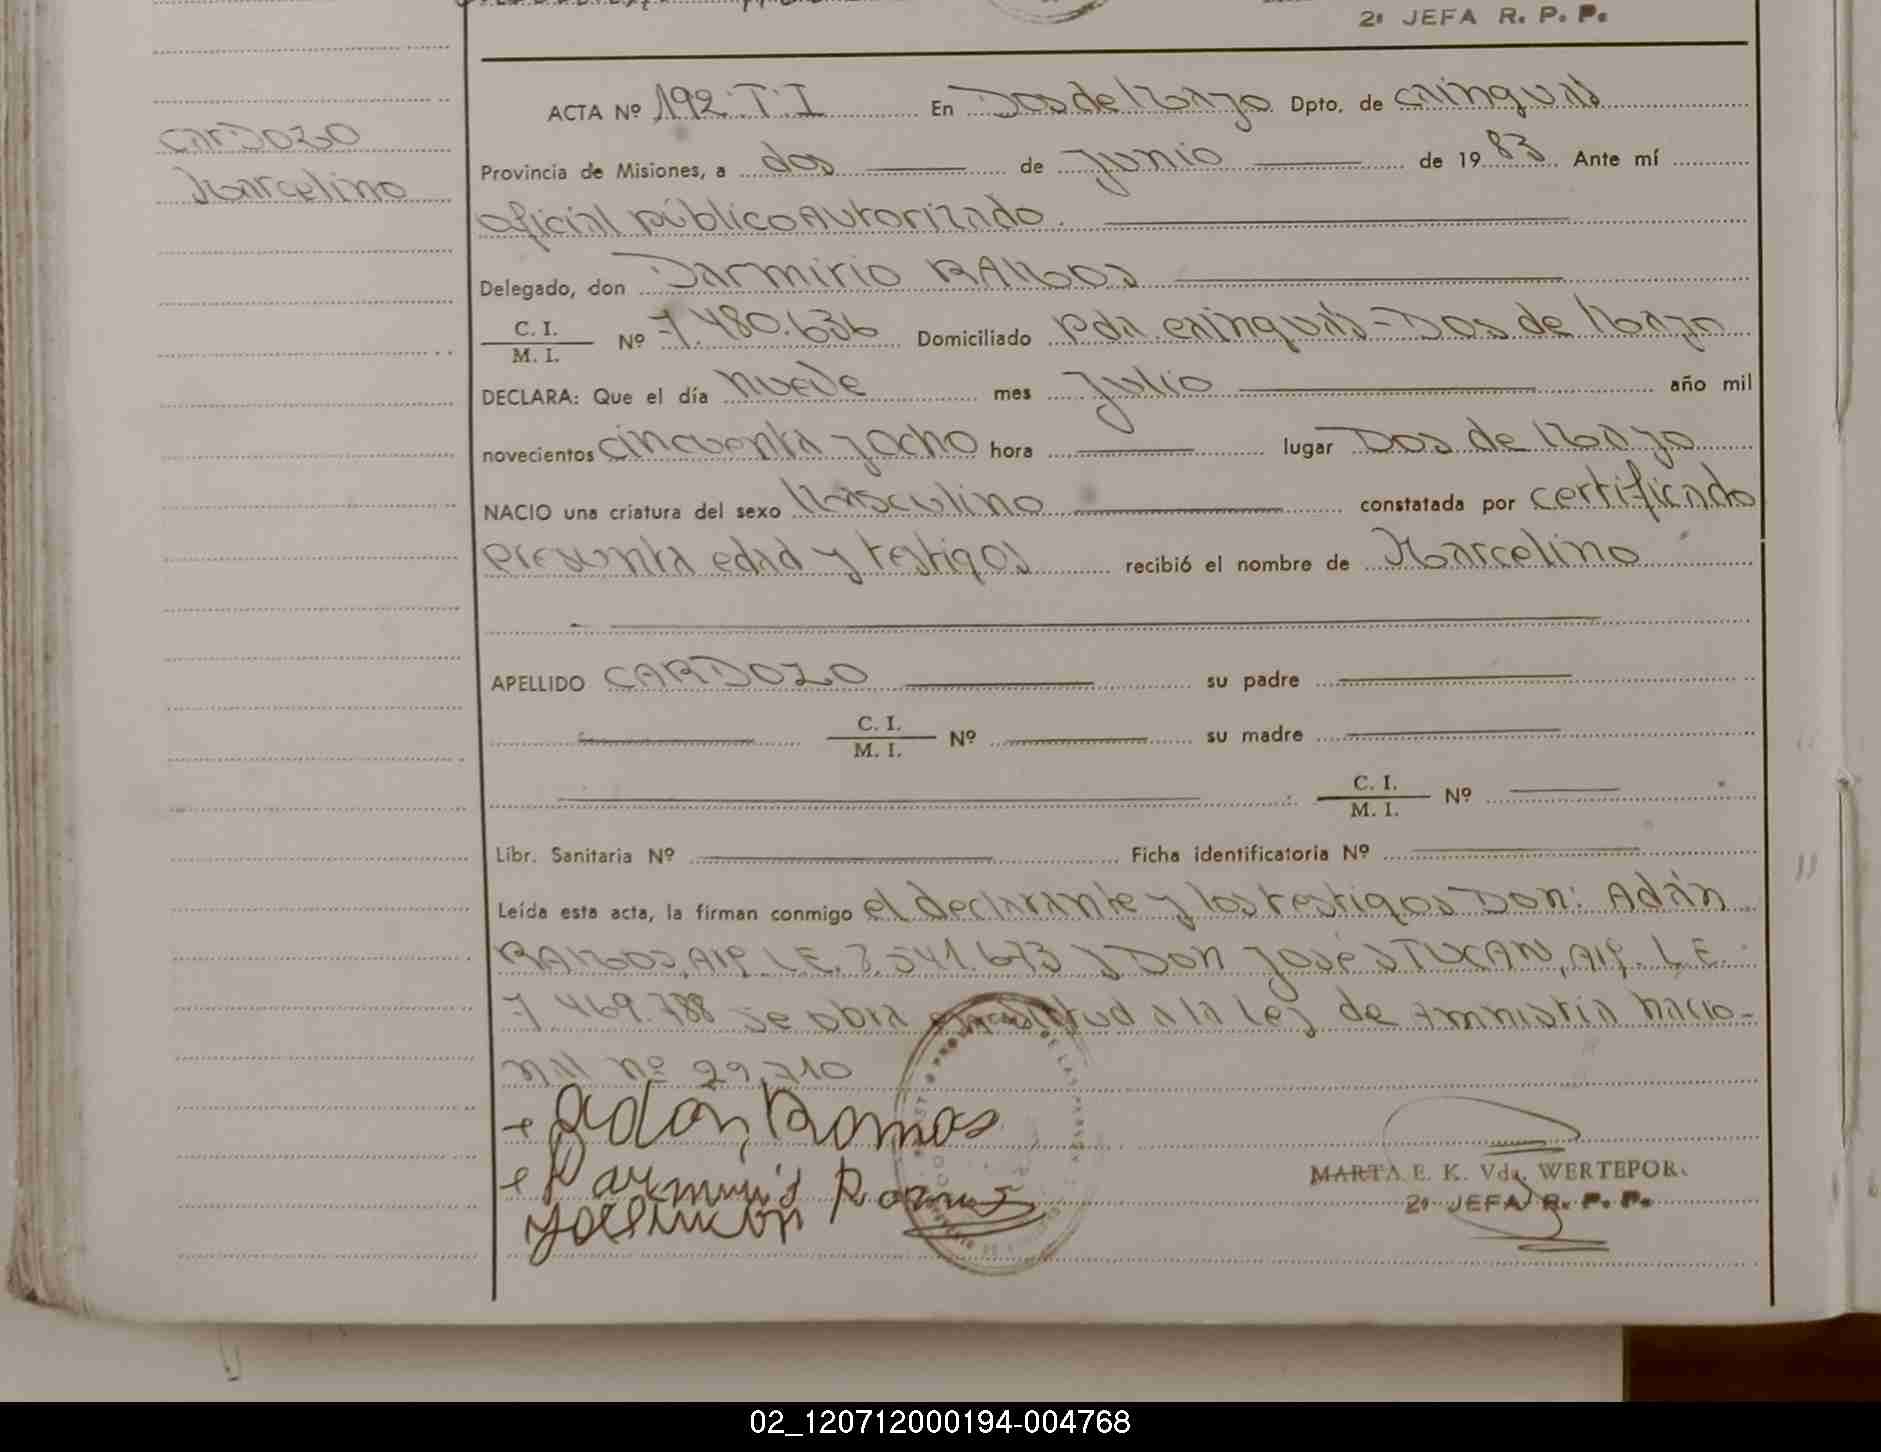 2ª JEFA R. P. P.
CARDOZO
Marcelino
ACTA Nº 192.T.I En Dos de Mayo Dpto. de Cainguas
Provincia de Misiones, a dos de Junio de 1983 Ante mí
oficial público Autorizado.
Delegado, don Darmirio RAMOS
C. I.
M. I. Nº 7.480.636 Domiciliado Pda. Cainguas - Dos de Mayo
DECLARA: Que el día nueve mes Julio año mil
novecientos cincuenta y ocho hora lugar Dos de Mayo
NACIO una criatura del sexo Masculino constatada por certificado
presunta edad y testigos recibió el nombre de Marcelino
APELLIDO CARDOZO su padre
C. I.
M. I. Nº su madre
C. I.
M. I. Nº
Libr. Sanitaria Nº Ficha identificatoria Nº
Leída esta acta, la firman conmigo el declarante y los testigos Don: Adán
RAMOS, Arg. L.E. 7.541.673 y Don José STUXAN, Arg. L.E.
7.469.788 se obra en virtud a la Ley de Amnistía nacio-
nal nº 22.210
Adan Ramos
Darmirio Ramos
MARTA E. K. Vda. WERTEPOR.
2ª JEFA R. P. P.
02_120712000194-004768